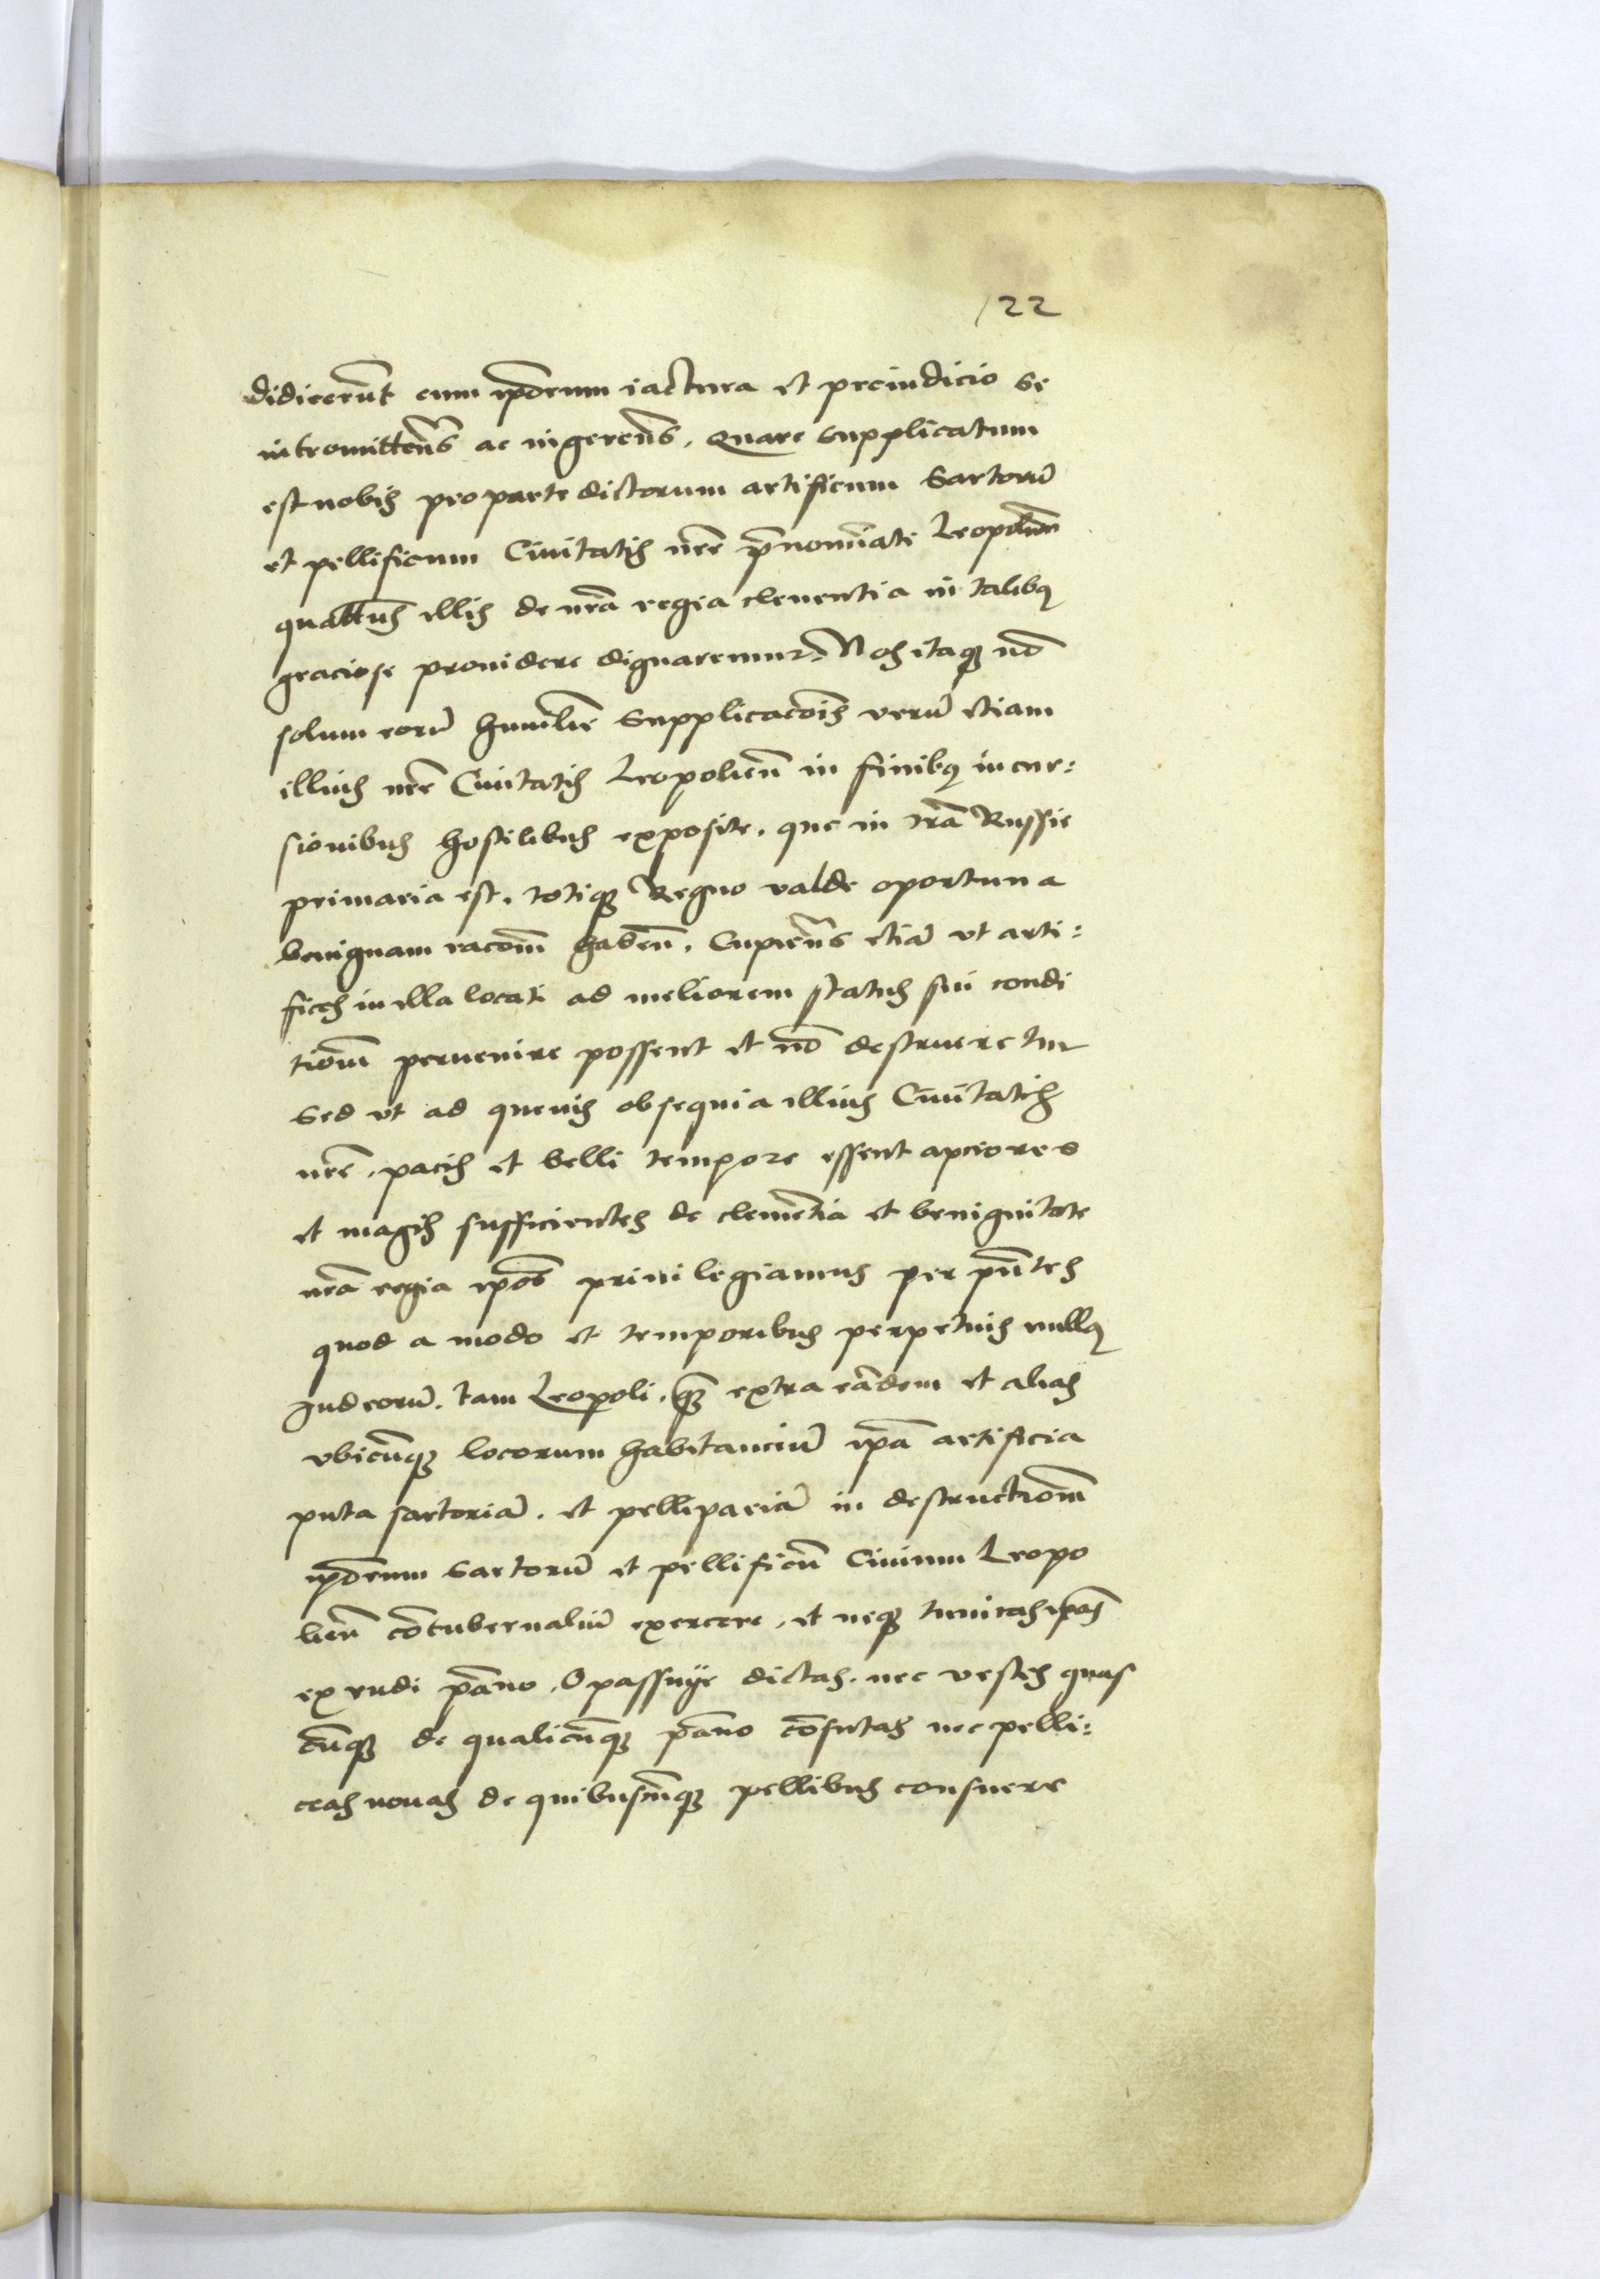 122
didicerūt cum ip̄orum iactura et preiudicio se
intromitteñs ac ingereñs. Quare supplicatum
est nobis pro parte dictorum artificum Sartorū
et pellificum Ciuitatis nr̄e p̄nomīate Leopolieñ
quatt̄us illis de nr̄a regia clementia in talibꝫ
graciose prouidere dignaremur. Nos itaqꝫ nō
solum eorū humil̄ie supplicac̄ois verū etiam
illius nr̄e Ciuitatis Leopolieñ in finibꝫ incur:
sionibus hostilibus exposite. que in tr̄a Russie
primaria est. totiqꝫ Regno valde oportuna
benignam rac̄om habeñ. Cupieñs etiā ut arti:
fices in illa locati ad meliorem status sui condi
tiōm peruenire possent et nō destruerētur
Sed ut ad queuis obsequia illius Ciuitatis
nr̄e. pacis et belli tempore essent apciores
et magis sufficientes de clemētia et benignitate
nr̄a regia ip̄os priuilegiamus per p̄ntes
quod a modo et temporibus perpetuis nullꝫ
Judeorū. tam Leopoli. qꝫ extra eādem et alias
vbicūqꝫ locorum habitanciū ip̄a artificia
puta sartoriā. et pellipariā in destructiōm
ip̄orum Sartorū et pellificū Ciuium Leopo
lieñ cōtubernaliū exercere. et neqꝫ tunicas ip̄as
ex rudi pāno. Opassnye dictas. nec vestes quas
cūqꝫ de qualicūqꝫ pāno cōsutas nec pelli:
ceas nouas de quibuscūqꝫ pellibus consuere